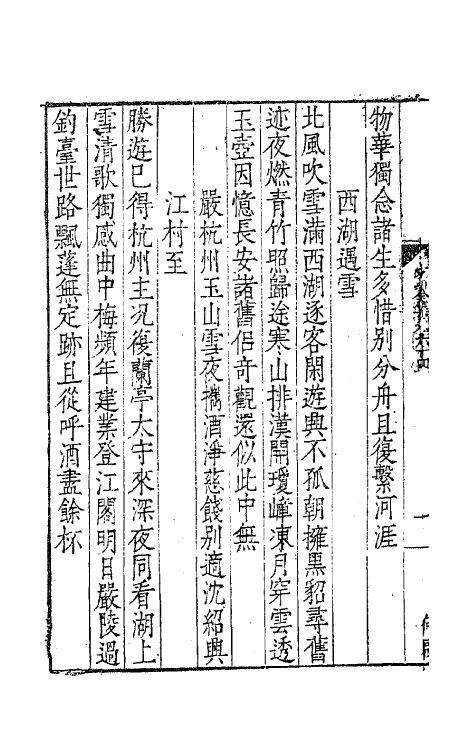 物華獨念諸生多惜別分舟且復繫河涯
西湖遇雪
北風吹雪滿西湖逐客閑遊興不孤朝擁黑貂尋舊
迹夜燃青竹照歸途寒山排漢開瓊嶂凍月穿雲透
玉壺因憶長安諸舊侶奇觀還似此中無
嚴杭州玉山雪夜攜酒淨慈餞別適沈紹興
江村至
勝遊已得杭州主况復蘭亭太守來深夜同看湖上
雪清歌獨感曲中梅頻年建業登江閣明日嚴陵過
釣臺世路飄蓬無定跡且從呼酒盡餘杯